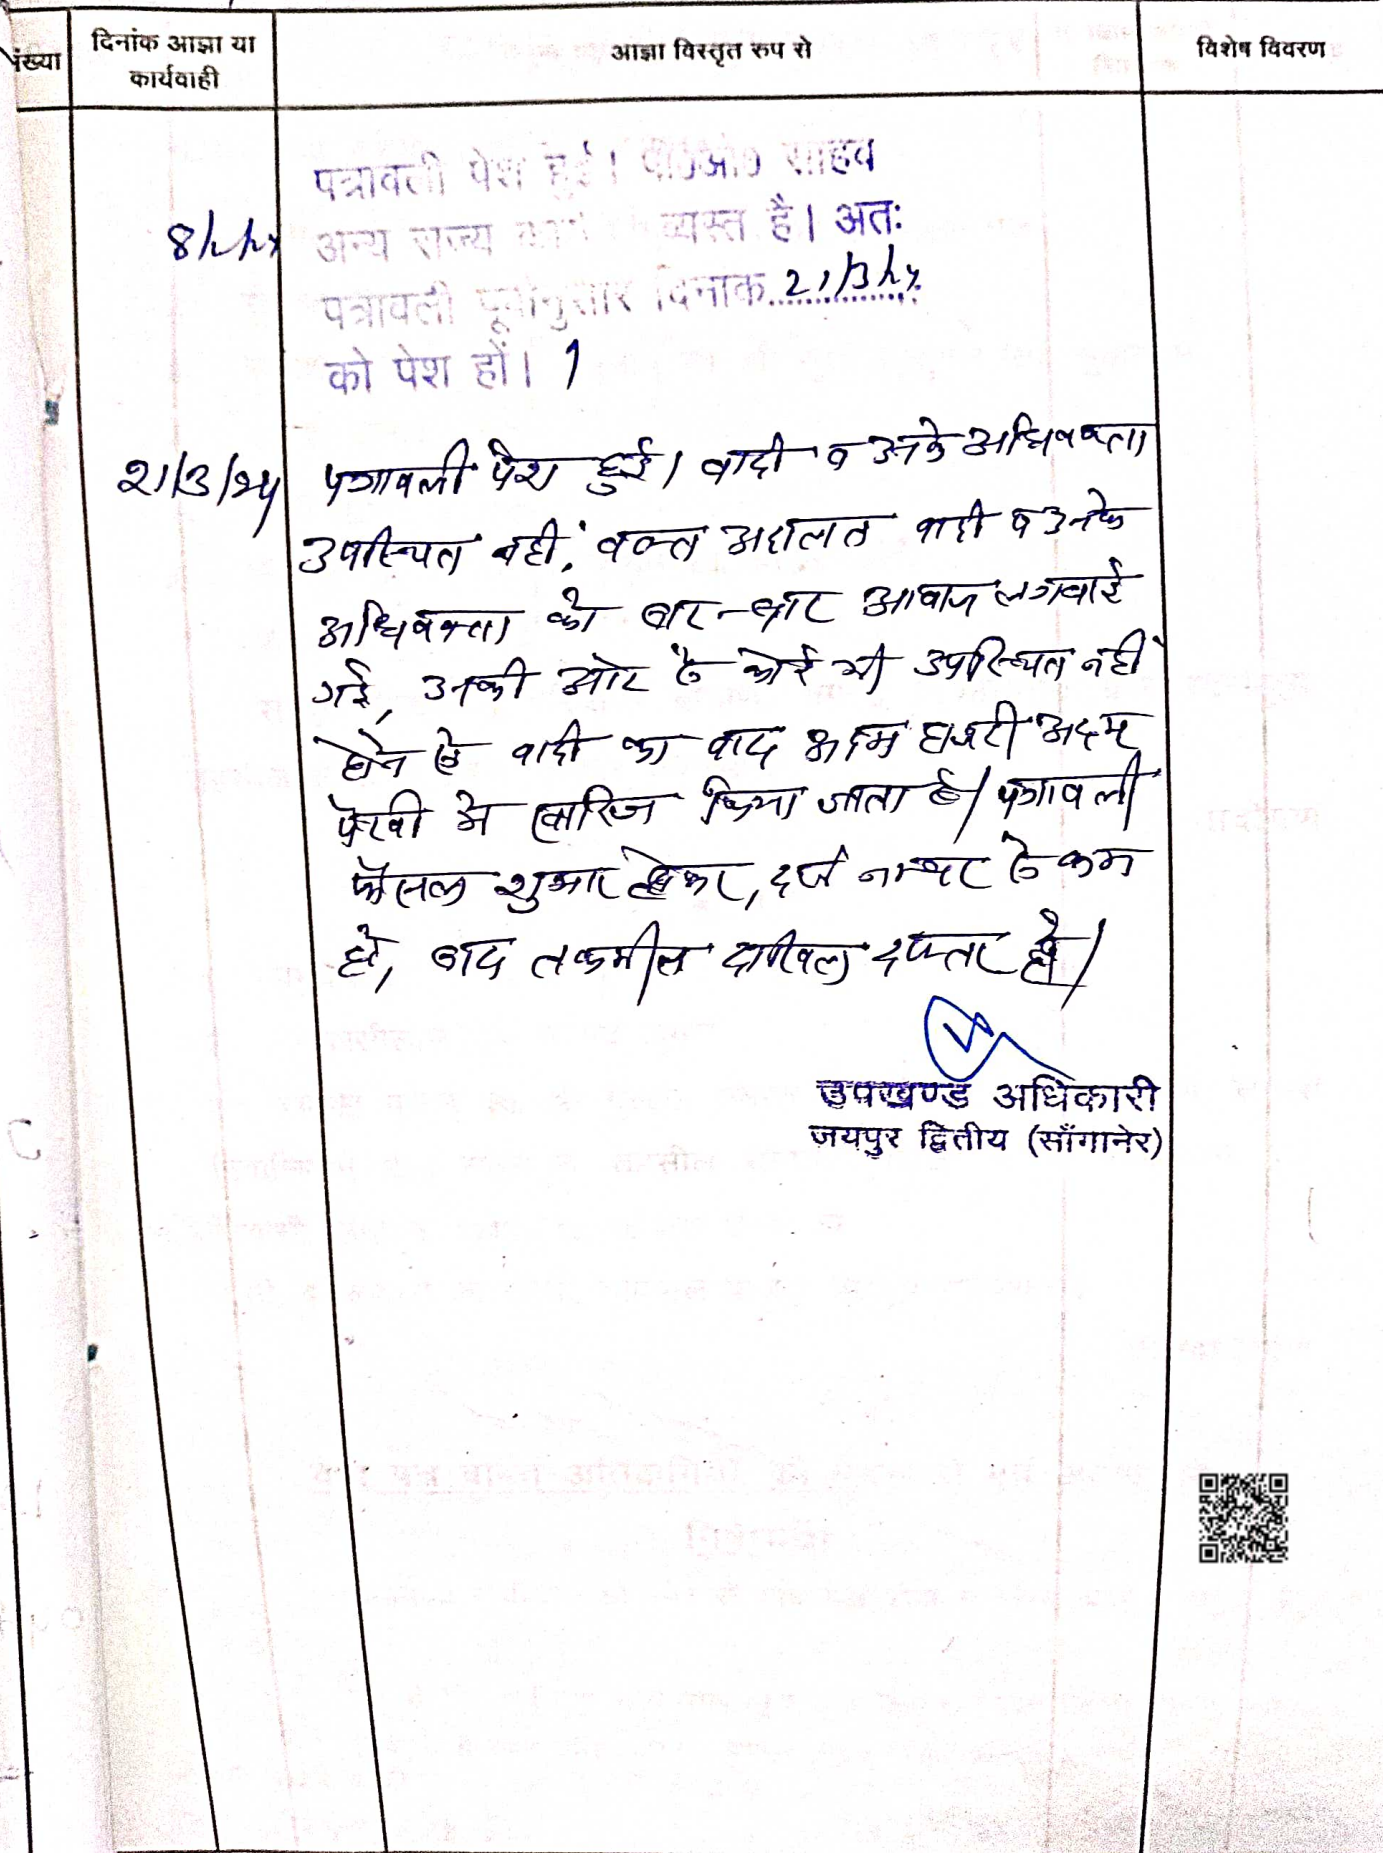 संख्या
दिनांक आज्ञा या
कार्यवाही
आज्ञा विस्तृत रुप से
विशेष विवरण
पत्रावली पेश हुई। पी०ओ० साहब
अन्य राज्य कार्य में व्यस्त है। अतः
पत्रावली पूर्वानुसार दिनांक 21/3/24
को पेश हों।
21/3/24
पत्रावली पेश हुई। वादी व उनके अधिवक्ता
उपस्थित नहीं, वक्त अदालत वादी व उनके
अधिवक्ता को बार-बार आवाज लगवाई
गई, उनकी ओर से कोई भी उपस्थित नहीं
होने से वादी का वाद अदम हाजरी अदम
पैरवी में खारिज किया जाता है। पत्रावली
फैसल शुमार होकर, दर्ज नम्बर से कम
हो, बाद तकमील दाखिल दफ्तर हो।
उपखण्ड अधिकारी
जयपुर द्वितीय (साँगानेर)